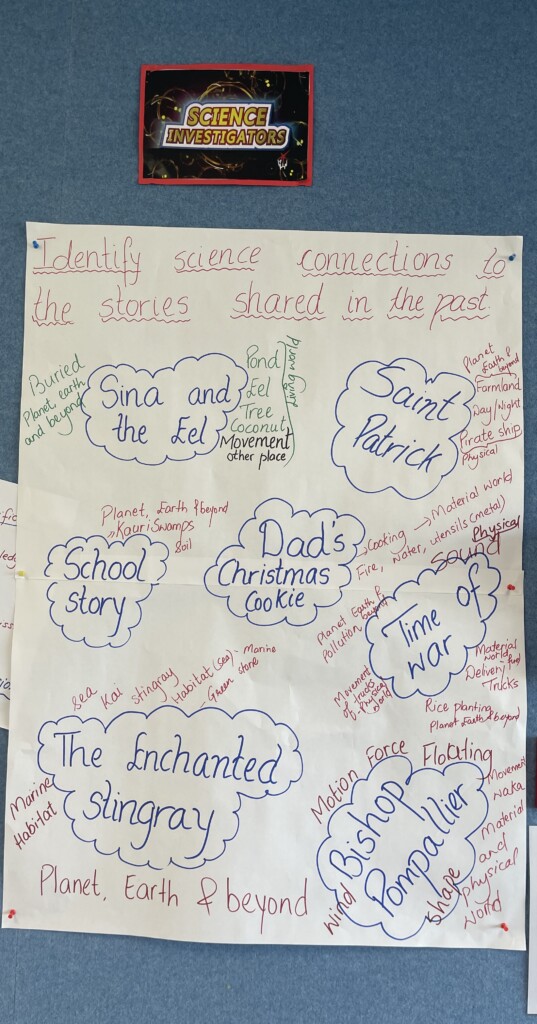 SCIENCE
INVESTIGATORS
Identify science connections to
the stories shared in the past
Buried
Planet earth
and beyond
Sina and
the Eel
Pond
Eel
Tree
Coconut
Movement
other place
Living world
Saint
Patrick
Planet
Earth &
beyond
Farmland
Day/Night
Pirate ship
Physical
Planet, Earth & beyond
Kauri Swamps
Soil
School
story
Dad's
Christmas
Cookie
Cooking → Material world
Fire, water, utensils (metal)
Physical
Sound
Time of
war
Planet Earth &
beyond
Pollution
Movement
of trucks
Physical
World
Material
world
Delivery food
Trucks
Rice planting
Planet Earth & beyond
sea Kai stingray Habitat (sea) - Marine
Green stone
The Enchanted
stingray
Marine
Habitat
Planet, Earth & beyond
Motion Force Floating
Bishop
Pompallier
Movement
waka
Material
and
physical
world
shape
wind